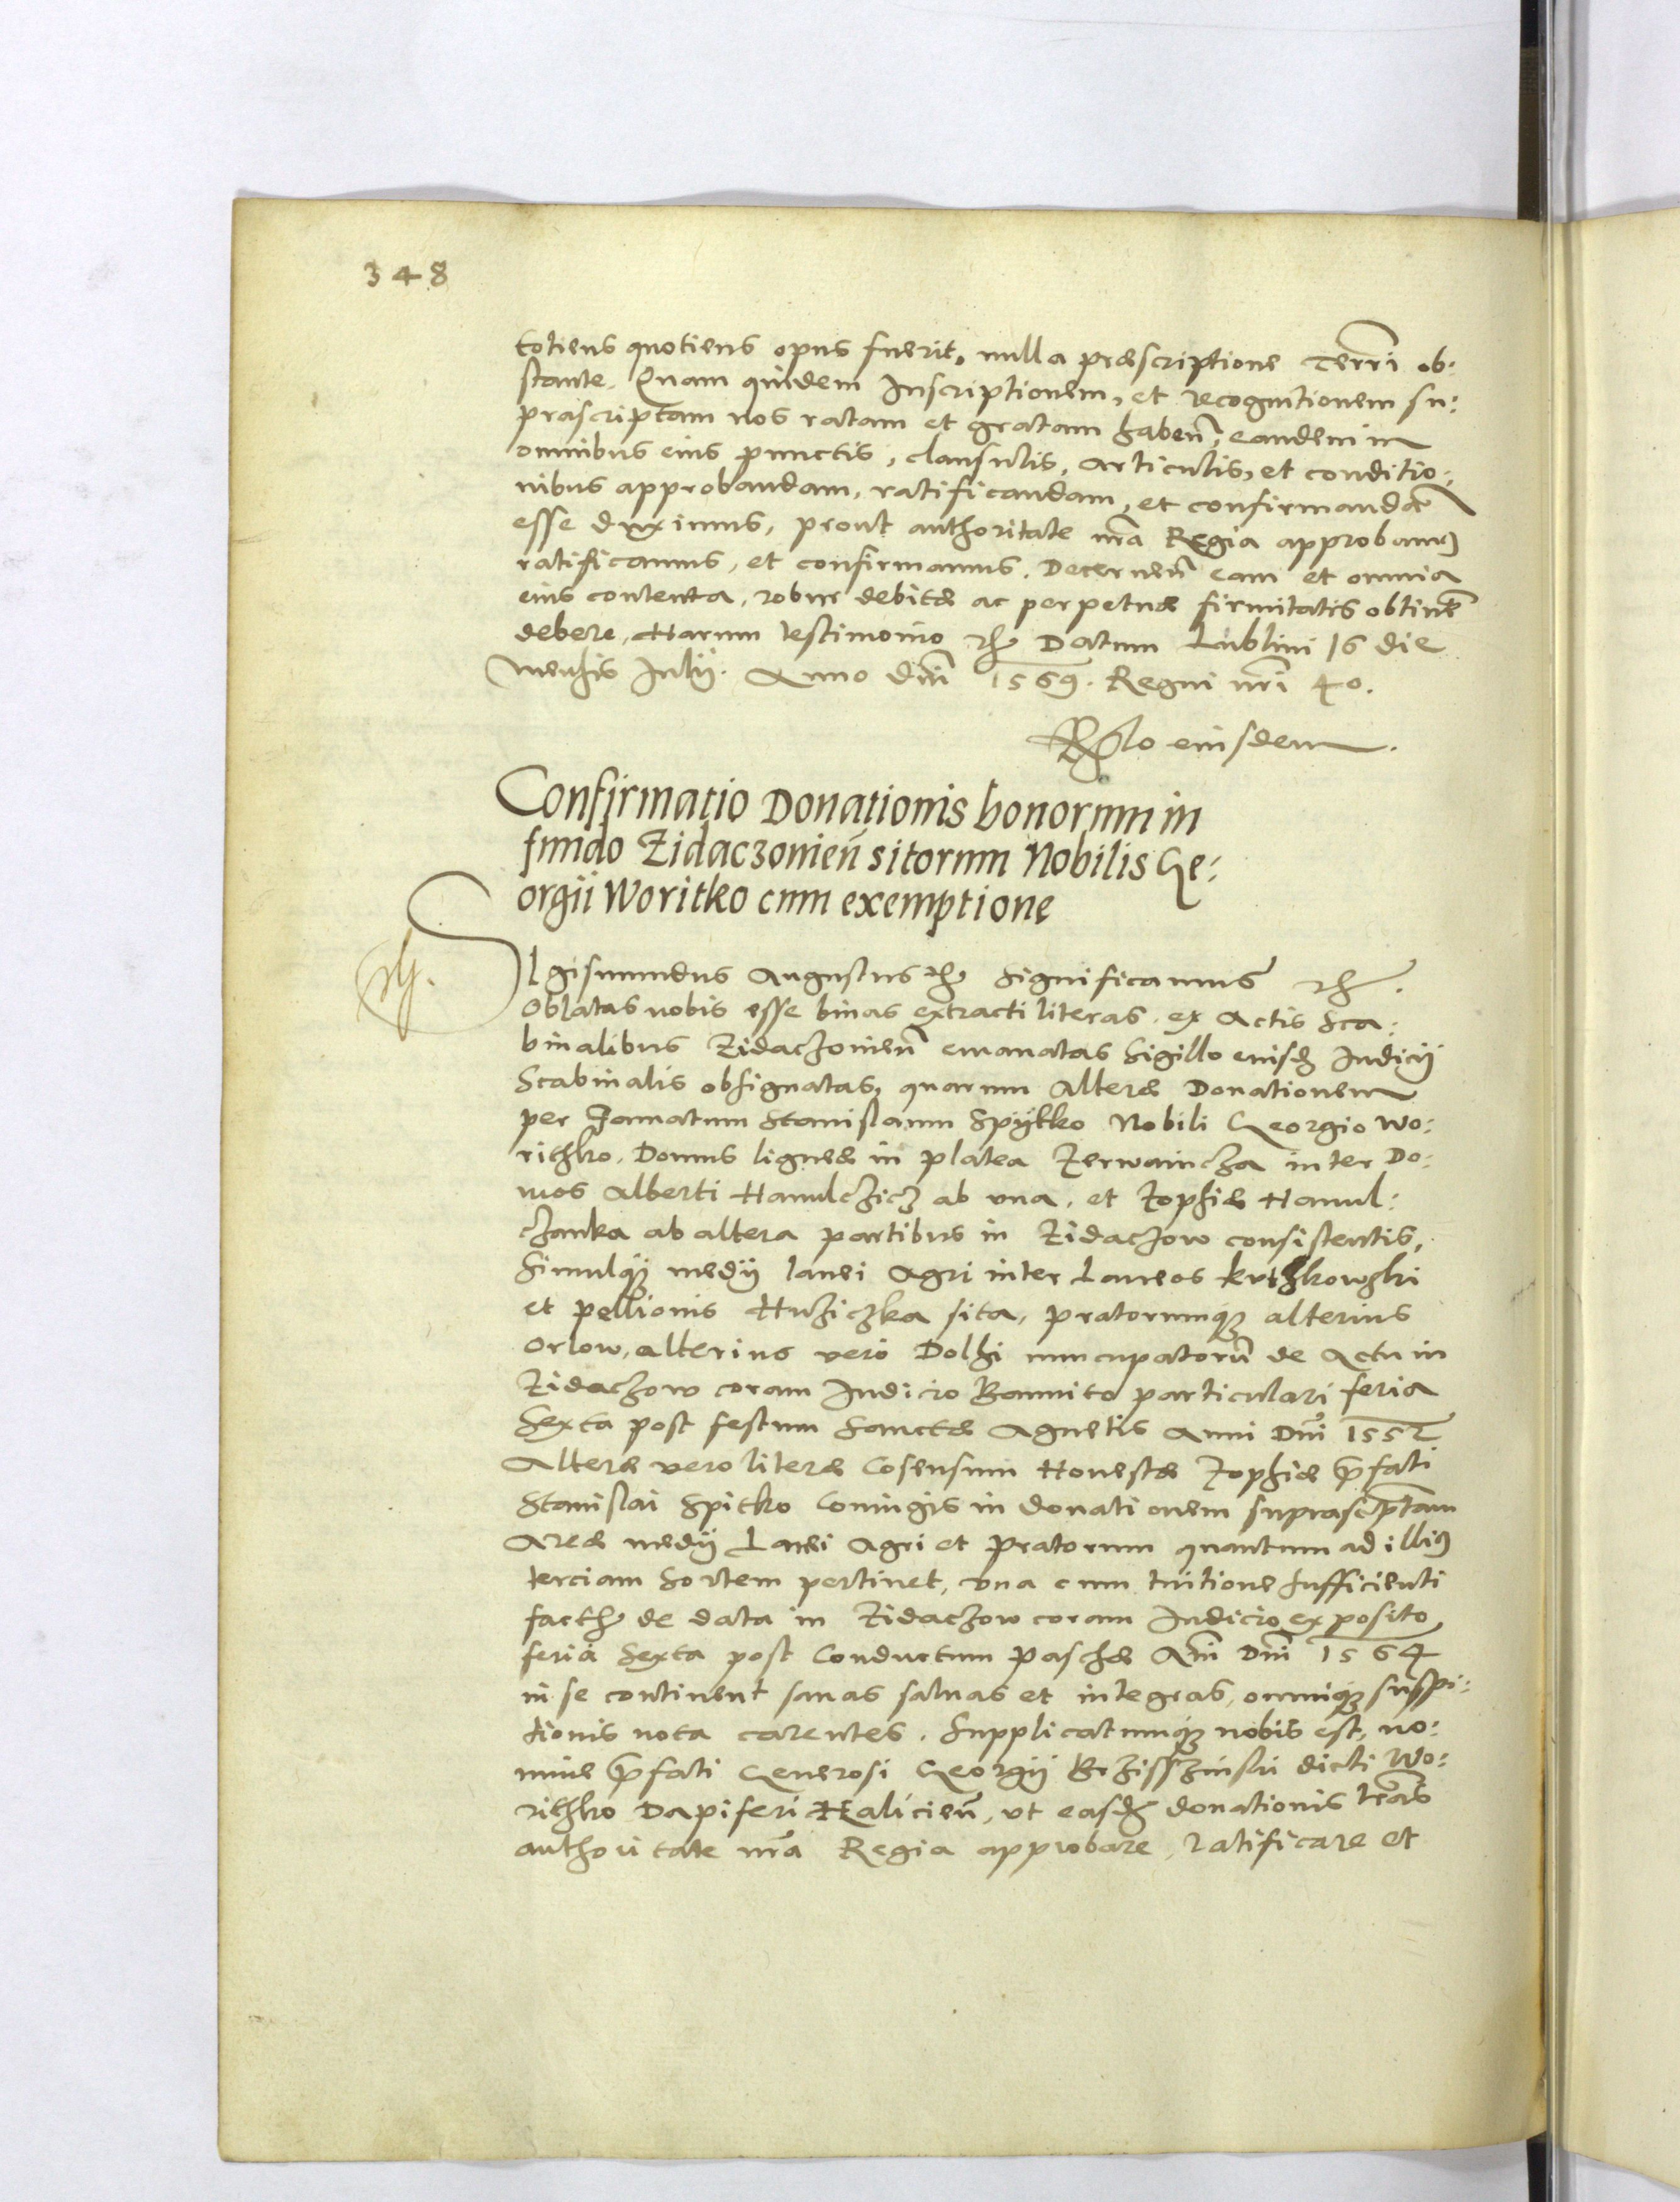 348
totiens quotiens opus fuerit, nulla præscriptione terr̃i ob:
stante. Quam quidem Inscriptionem, et recognitionem su:
prascriptam nos ratam et gratam haben̄, eandem in
omnibus eius punctis, clausulis, articulis, et conditio:
nibus approbandam, ratificandam, et confirmandā
esse duximus, prout authoritate nr̃a Regia approbamus
ratificamus, et confirmamus. Decernen̄ eam et omnia
eius contenta, robur debitæ ac perpetuæ firmitatis obtinē
debere, Harum testimonio etc Datum Lublini 16 die
mensis Julij. Anno Dn̄i 1569. Regni nr̃i 40.
Rlo eiusdem.
Confirmatio Donationis bonorum in
fundo Zidaczowien̄ sitorum Nobilis Ge:
orgii Woritko cum exemptione
SIgismundus Augustus etc Significamus etc.
Oblatas nobis esse binas extracti literas, ex Actis Sca:
binalibus Zidaczowien̄ emanatas Sigillo eiusd. Judicij
Scabinalis obsignatas, quarum alteræ Donationem
per Famatum Stanislaum Spÿtko Nobili Georgio Wo:
rithko, Domus ligneæ in platea Zerwaincza inter Do:
mos Alberti Hanulczicz ab una, et Zophiæ Hanul:
czanka ab altera partibus in Zidaczow consistentis,
Simulq3 medij lanei Agri inter Laneos Kuthkowzki
et pellionis Huziczka sita, pratorumq3 alterius
Orlow, alterius vero Dolhi nuncupatorū de Actu in
Zidaczow coram Judicio Bannito particulari feria
Sexta post festum Sanctæ Agnetis Anni Dn̄i 1552
Alteræ vero literæ Cosensum Honestæ Zophiæ p̄fati
Stanislai Spitko Coniugis in donationem suprascp̄tam
Areæ medij Lanei Agri et Pratorum quantum ad illius
terciam Sortem pertinet, una cum tuitione sufficienti
facth. de data in Zidaczow coram Judicio exposito
feria Sexta post Conductum Paschæ An̄i Dn̄i 1564
in se continent sanas saluas et integras, omniq3 suspi:
tionis nota carentes. Supplicatumq3 nobis est, no:
mine p̄fati Generosi Georgij Brzissziński dicti Wo:
rithko Dapiferi Halicien̄, ut easd. donationis lr̃as
authoritate nr̃a Regia approbare, ratificare et